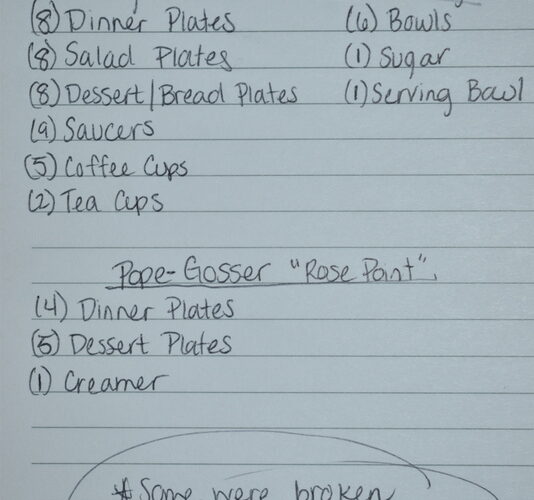 (8) Dinner Plates (6) Bowls
(8) Salad Plates (1) Sugar
(8) Dessert/Bread Plates (1) Serving Bowl
(9) Saucers
(5) Coffee Cups
(2) Tea Cups
Pope-Gosser "Rose Point".
(4) Dinner Plates
(5) Dessert Plates
(1) Creamer
* Some were broken